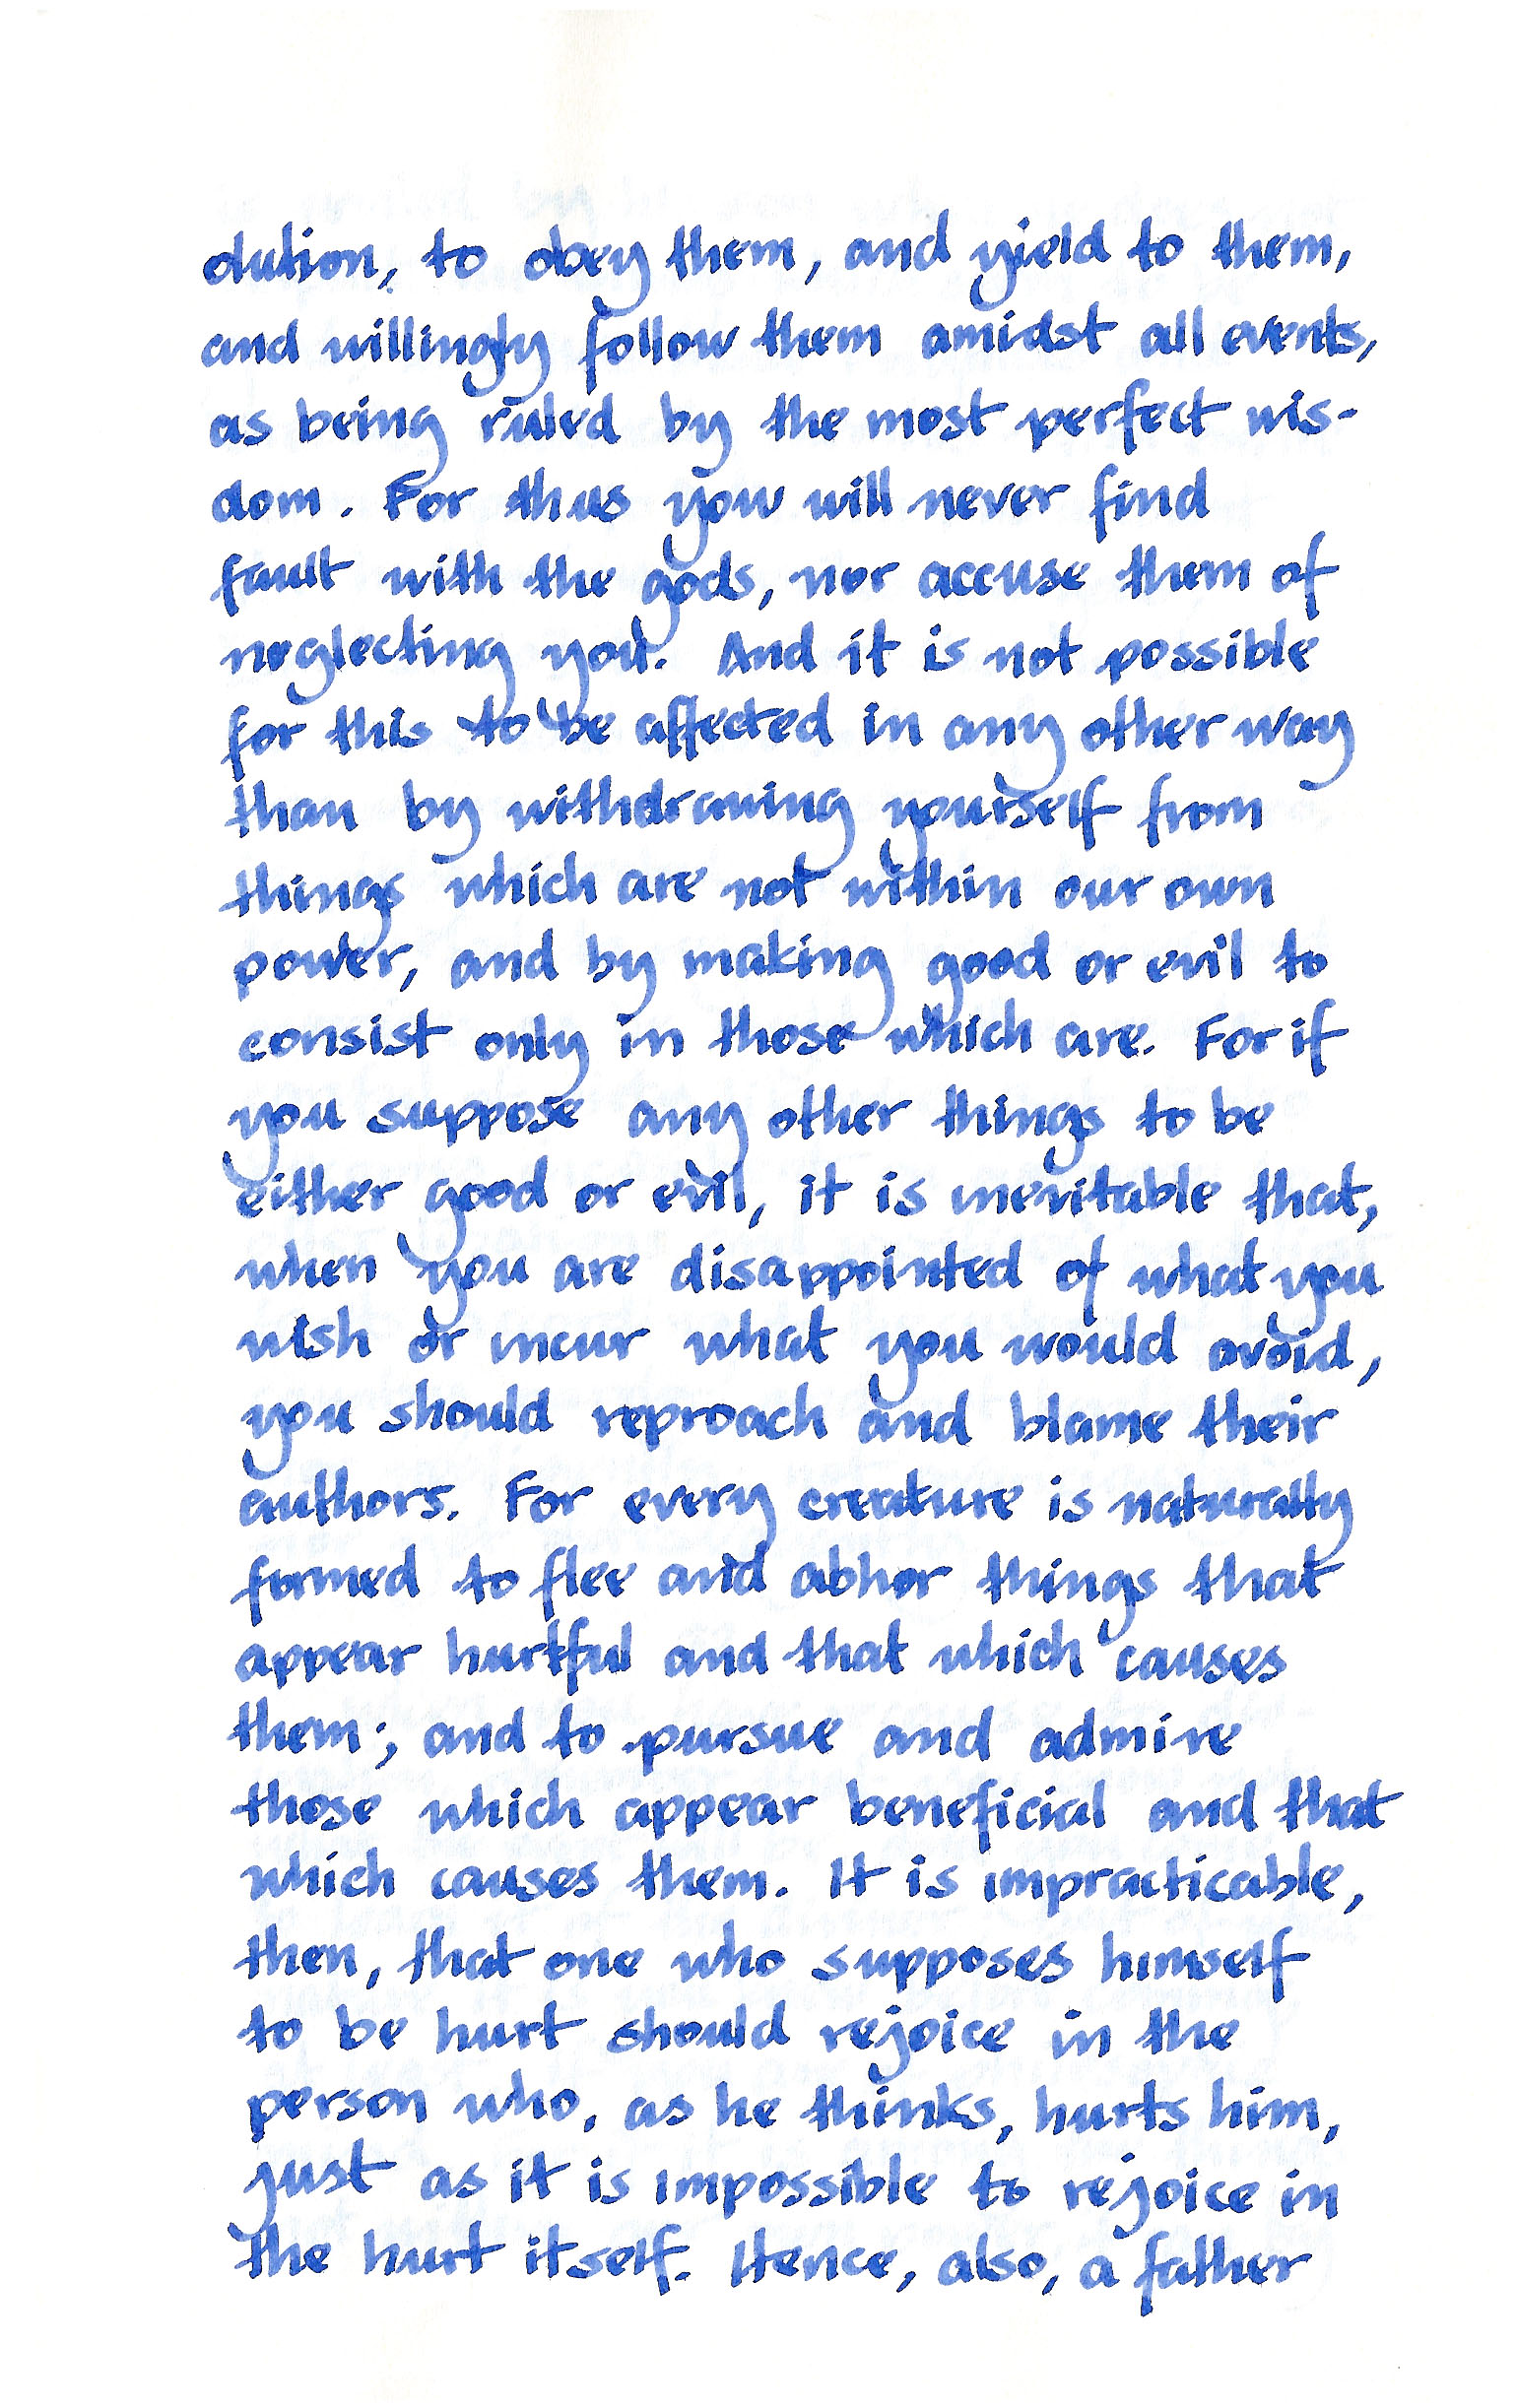 olution, to obey them, and yield to them,
and willingly follow them amidst all events,
as being ruled by the most perfect wis-
dom. For thus you will never find
fault with the gods, nor accuse them of
neglecting you. And it is not possible
for this to be affected in any other way
than by withdrawing yourself from
things which are not within our own
power, and by making good or evil to
consist only in those which are. For if
you suppose any other things to be
either good or evil, it is inevitable that,
when you are disappointed of what you
wish or incur what you would avoid,
you should reproach and blame their
authors. For every creature is naturally
formed to flee and abhor things that
appear hurtful and that which causes
them; and to pursue and admire
those which appear beneficial and that
which causes them. It is impracticable,
then, that one who supposes himself
to be hurt should rejoice in the
person who, as he thinks, hurts him,
just as it is impossible to rejoice in
the hurt itself. Hence, also, a father